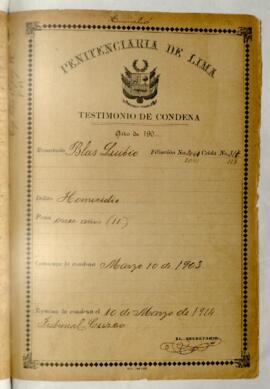 Cumplió
PENITENCIARÍA DE LIMA
TESTIMONIO DE CONDENA
Año de 190
Rematado Blas Filiación No. Celda No.
Delito Homicidio
Pena once años (11)
Comienza la condena Marzo 10 de 1903
Termina la condena el 10 de Marzo de 1914
Tribunal Cuzco
EL SECRETARIO